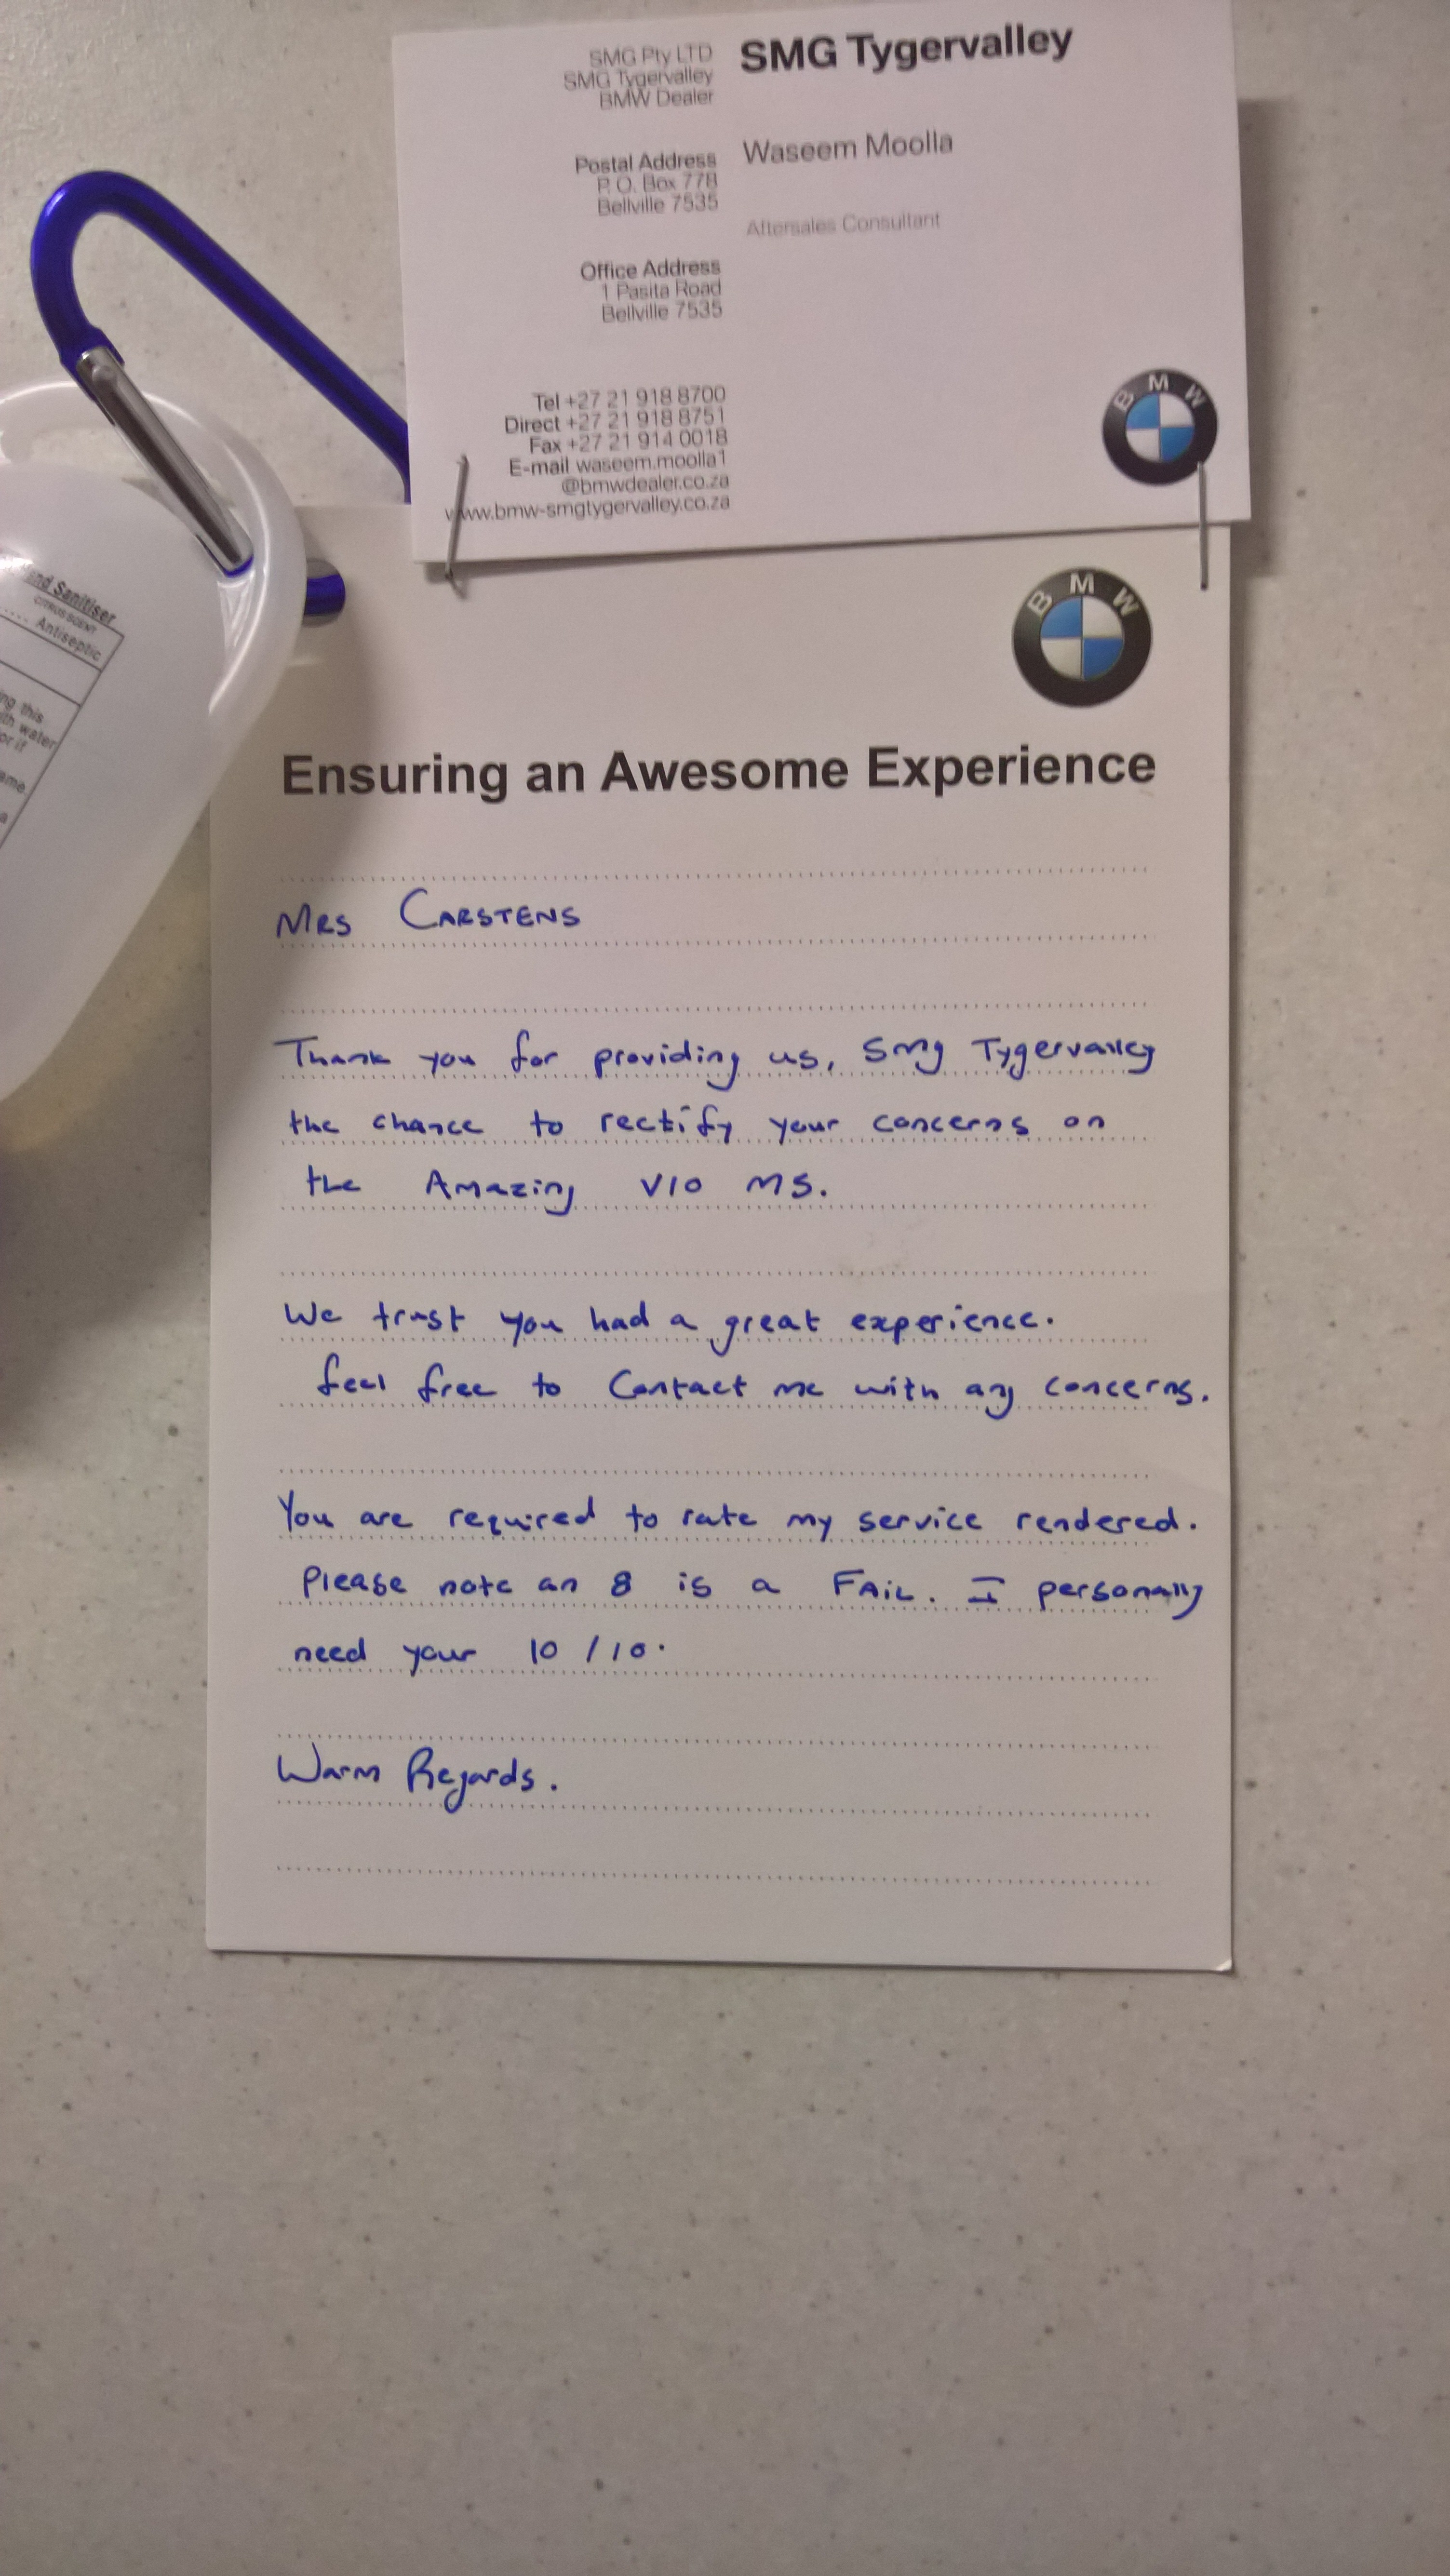 SMG Pty LTD
SMG Tygervalley
BMW Dealer
SMG Tygervalley
Waseem Moolla
Aftersales Consultant
Postal Address
P. O. Box 778
Bellville 7535
Office Address
1 Pasita Road
Bellville 7535
Tel +27 21 918 8700
Direct +27 21 918 8751
Fax +27 21 914 0018
E-mail waseem.moolla1
@bmwdealer.co.za
www.bmw-smgtygervalley.co.za
BMW
BMW
Ensuring an Awesome Experience
Mrs Carstens
Thank you for providing us, SMG Tygervalley
the chance to rectify your concerns on
the Amazing V10 M5.
We trust you had a great experience.
feel free to Contact me with any concerns.
You are required to rate my service rendered.
Please note an 8 is a FAIL. I personally
need your 10 / 10.
Warm Regards.
Sanitiser
CITRUS SCENT
Antiseptic
this
water
or if